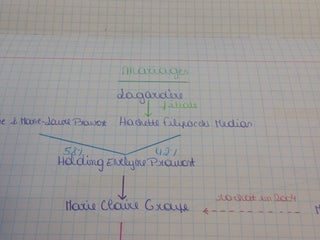 Mariages
Lagardère
filiale
e J. Marie-Laure Prouvost Hachette Filipacchi Medias
58% 42%
Holding Evelyne Prouvost
Marie Claire Groupe
rachat en 2004